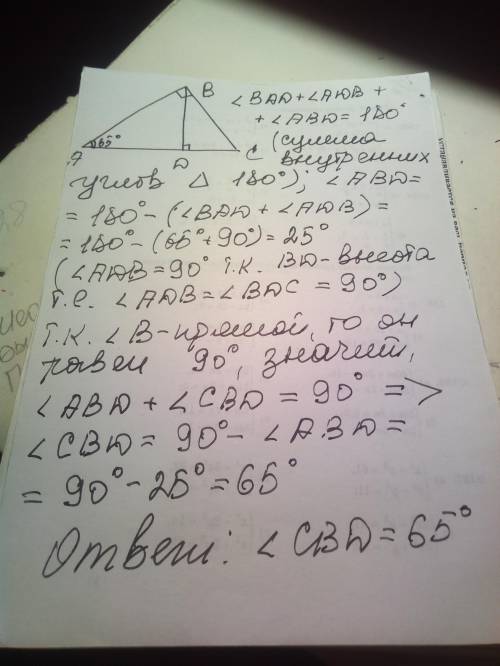 B
∠BAD+∠ADB+
65°
+∠ABD=180°
A
D
C
(сумма
внутренних
углов Δ 180°); ∠ABD=
=180°-(∠BAD+∠ADB)=
=180°-(65°+90°)=25°
(∠ADB=90° т.к. BD-высота
т.е. ∠ADB=∠BDC =90°)
т.к. ∠B-прямой, то он
равен 90°, значит,
∠ABD+∠CBD=90° =>
∠CBD=90°-∠ABD=
=90°-25°=65°
Ответ: ∠CBD=65°